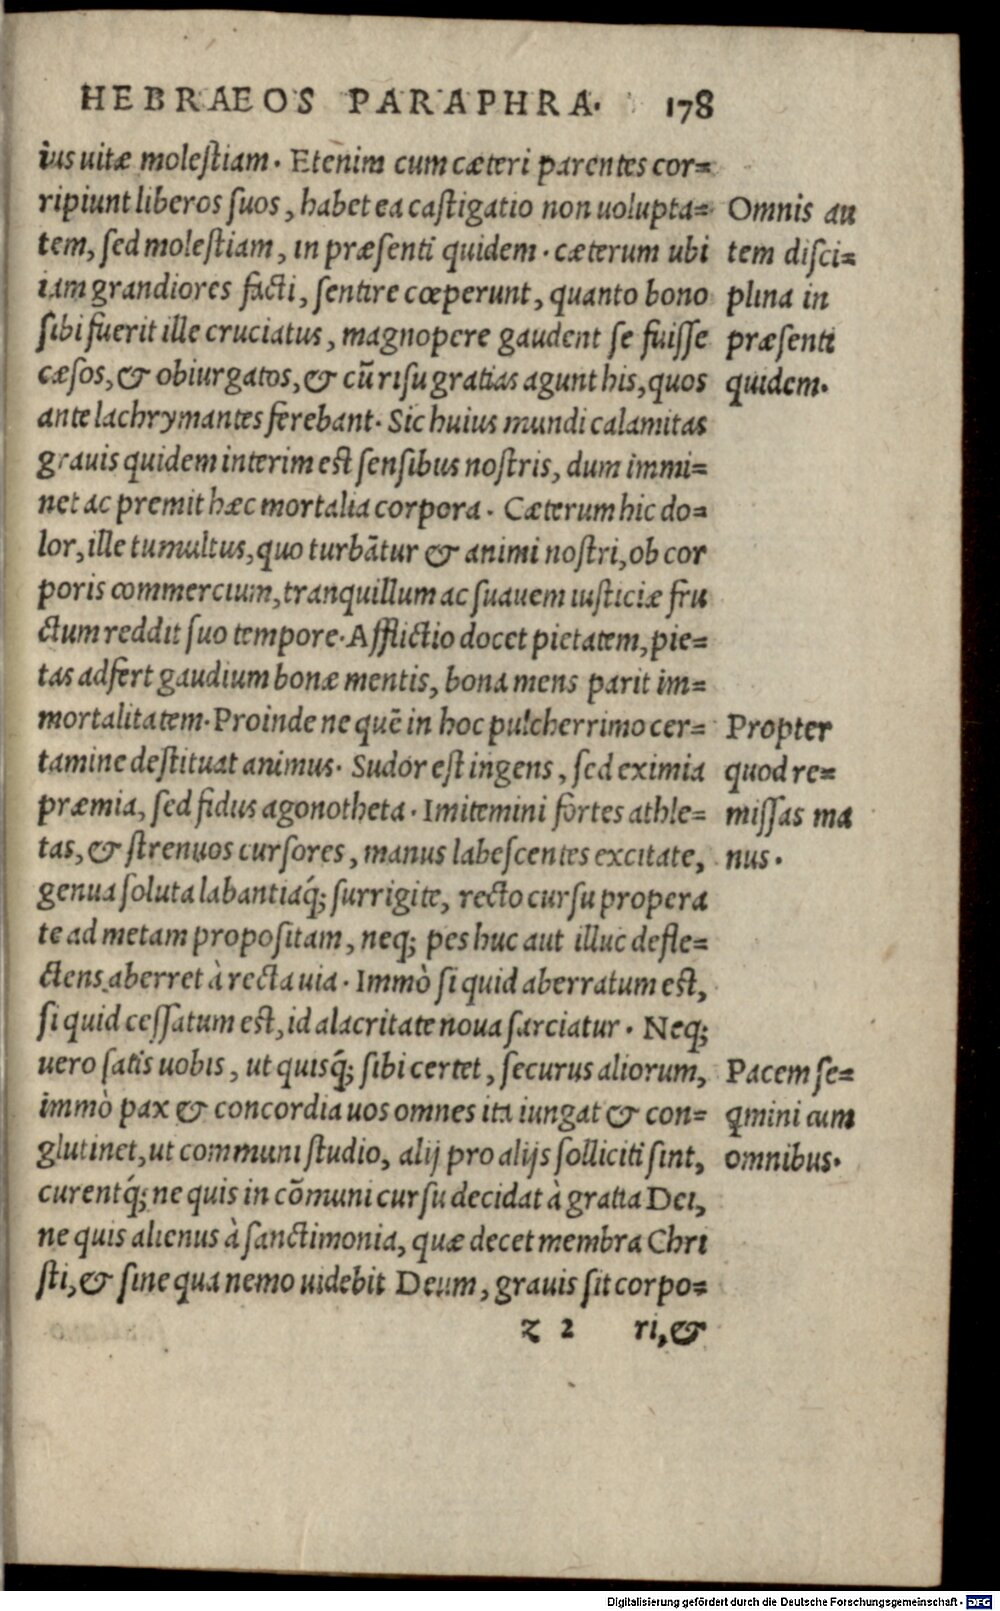 HEBRAEOS PARAPHRA. 178
ius uitæ molestiam. Etenim cum cæteri parentes cor=
ripiunt liberos suos, habet ea castigatio non uolupta=
tem, sed molestiam, in præsenti quidem. cæterum ubi
iam grandiores facti, sentire cœperunt, quanto bono
sibi fuerit ille cruciatus, magnopere gaudent se fuisse
cæsos, & obiurgatos, & cū risu gratias agunt his, quos
ante lachrymantes ferebant. Sic huius mundi calamitas
grauis quidem interim est sensibus nostris, dum immi=
net ac premit hæc mortalia corpora. Cæterum hic do=
lor, ille tumultus, quo turbātur & animi nostri, ob cor
poris commercium, tranquillum ac suauem iusticiæ fru
ctum reddit suo tempore. Afflictio docet pietatem, pie=
tas adfert gaudium bonæ mentis, bona mens parit im=
mortalitatem. Proinde ne quē in hoc pulcherrimo cer=
tamine destituat animus. Sudor est ingens, sed eximia
præmia, sed fidus agonotheta. Imitemini fortes athle=
tas, & strenuos cursores, manus labescentes excitate,
genua soluta labantiaq́; surrigite, recto cursu propera
te ad metam propositam, neq; pes huc aut illuc defle=
ctens aberret à recta uia. Immò si quid aberratum est,
si quid cessatum est, id alacritate noua sarciatur. Neq;
uero satis uobis, ut quisq́; sibi certet, securus aliorum,
immò pax & concordia uos omnes ita iungat & con=
glutinet, ut communi studio, alij pro alijs solliciti sint,
curentq́; ne quis in cōmuni cursu decidat à gratia Dei,
ne quis alienus à sanctimonia, quæ decet membra Chri
sti, & sine qua nemo uidebit Deum, grauis sit corpo=
z 2 ri, &
Omnis au
tem disci=
plina in
præsenti
quidem.
Propter
quod re=
missas ma
nus.
Pacem se=
qmini cum
omnibus.
Digitalisierung gefördert durch die Deutsche Forschungsgemeinschaft - DFG